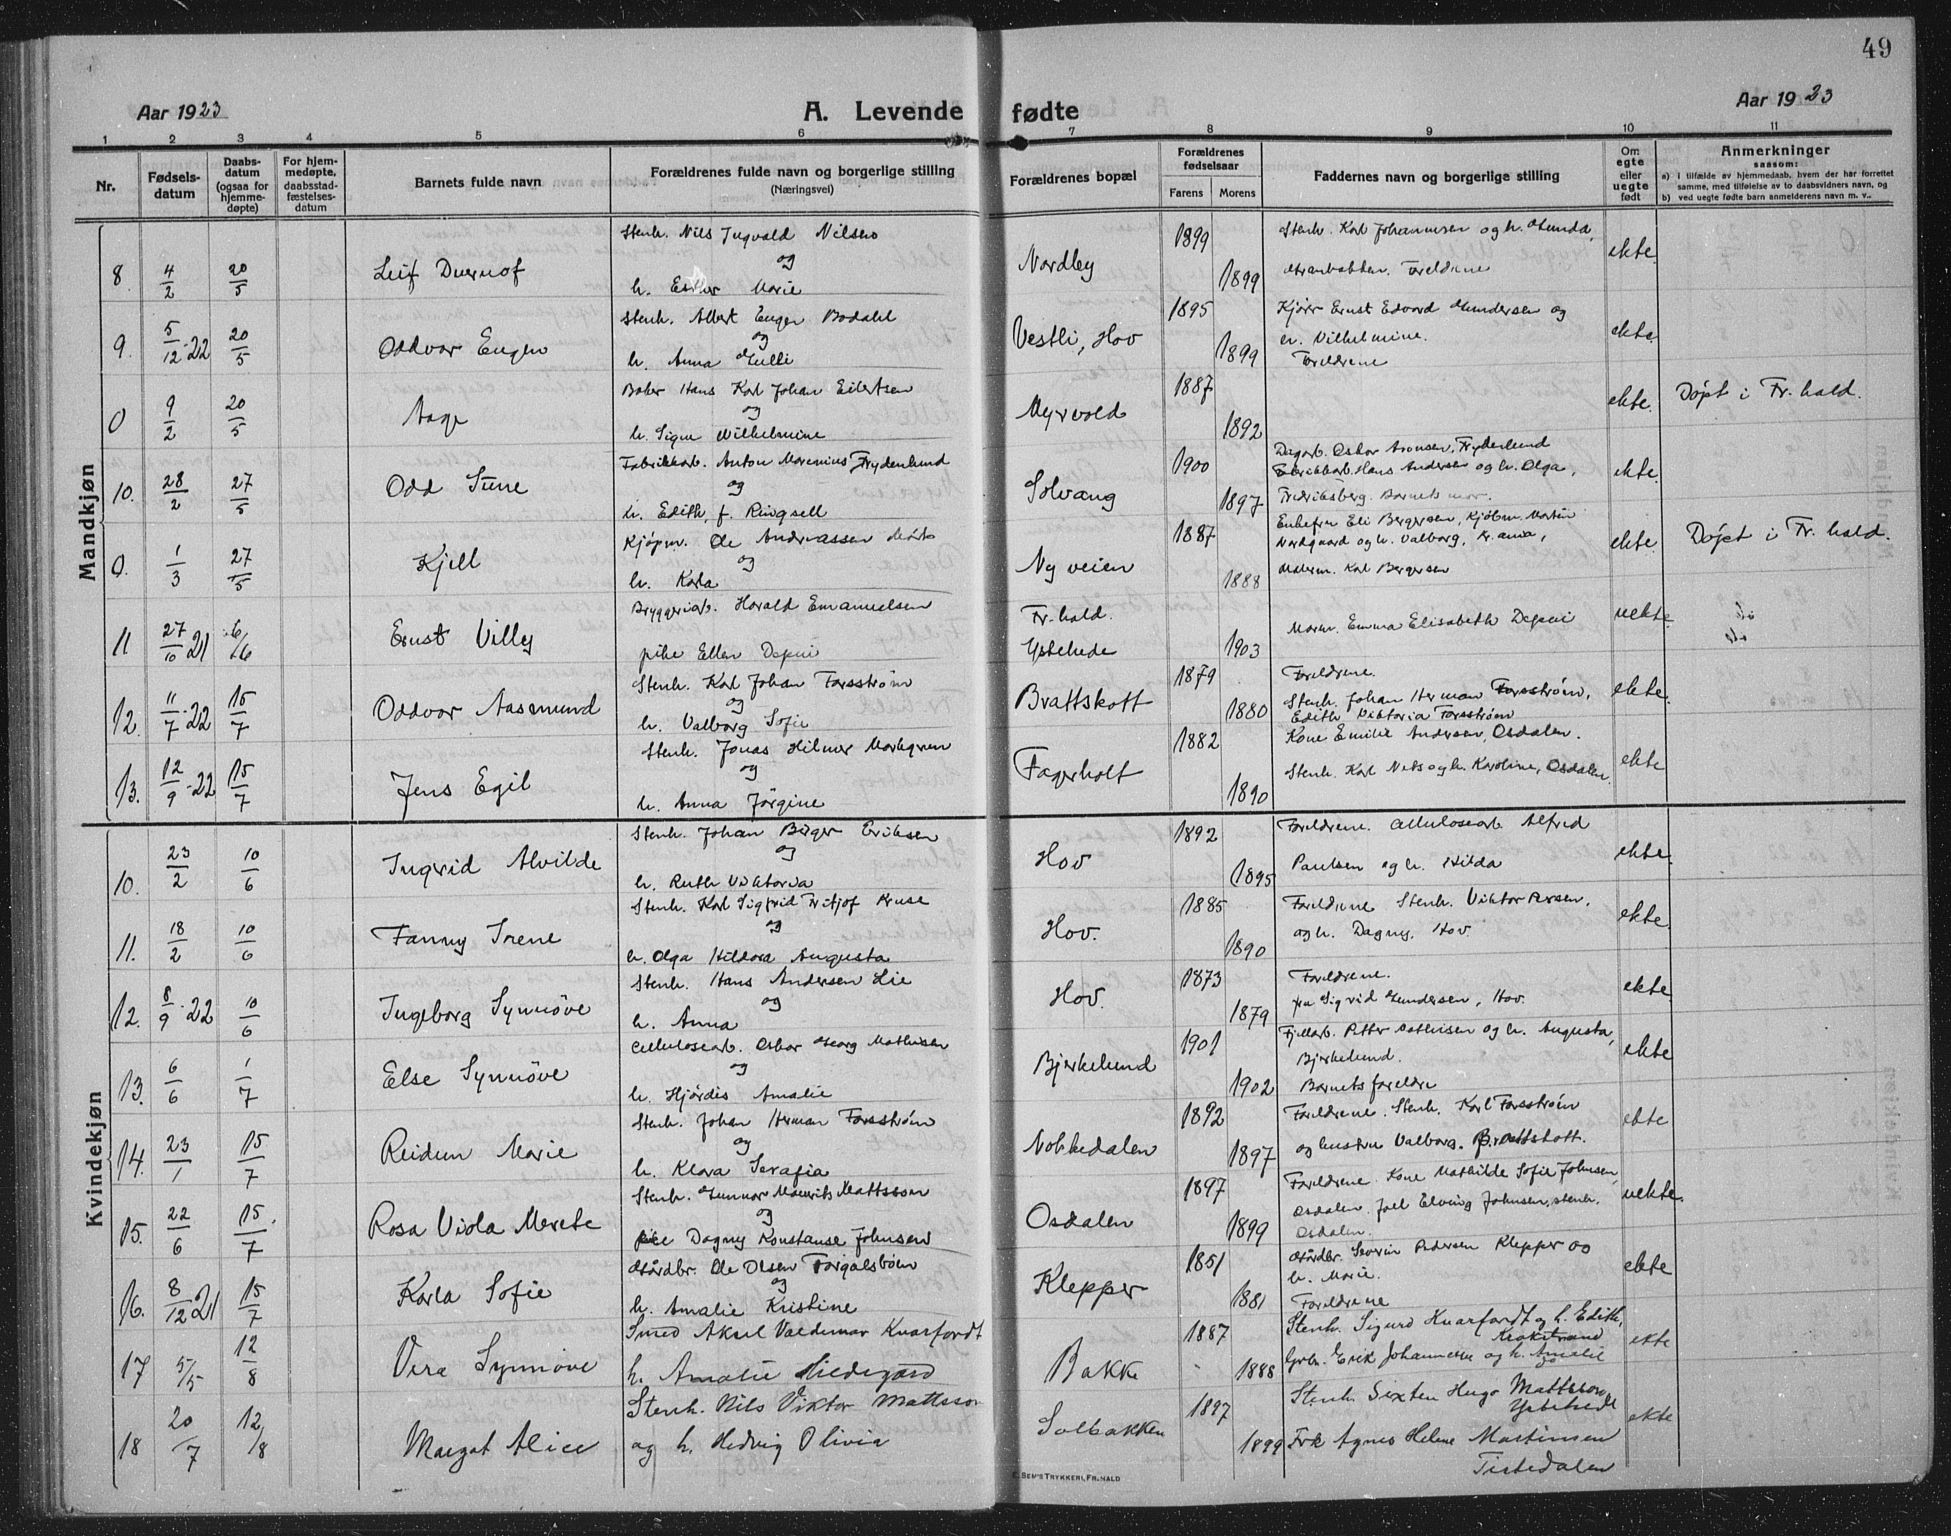 49
Aar 1923
A. Levende fødte
Aar 1923
1 2 3 4 5 6 7 8 9 10 11
Nr.
Fødsels-
datum
Daabs-
datum
(ogsaa for
hjemme-
døpte)
For hjem-
medøpte,
daabsstad-
fæstelses-
datum
Barnets fulde navn
Forældrenes fulde navn og borgerlige stilling
(Næringsvei)
Forældrenes bopæl
Forældrenes
fødselsaar
Farens Morens
Faddernes navn og borgerlige stilling
Om
egte
eller
uegte
født
Anmerkninger
saasom:
a) i tilfælde av hjemmedaab, hvem der har forrettet
samme, med tilføielse av to daabsvidners navn, og
b) ved uegte fødte barn anmelderens navn m. v..
Mandkjøn
Stenh. Nils Ingvald Nilsen 1899 Stenh. Karl Johannesen og h. Gunda,
8 4/2 20/5 Leif og Nordby ekte.
h. Ester Marie 1899 Foreldrene
Stenh. Albert Eugen Bodahl 1895 Ernst Edvard Gundersen og
9. 5/12-22 20/5 Oddvar Eugen og Vestli, Hov h. Vilhelmine. ekte.
h. Anna Gulli 1899 Foreldrene
Baker Hans Karl Johan Eilertsen 1887
0 9/2 20/5 Aage og Myrvold ekte. Døpt i Fr. hald.
h. Signe Wilhelmine 1892
Fabrikkarb. Anton Marenius Frydenlund 1900 Dagarb. Oskar Aronsen, Frydenlund
10. 28/2 27/5 Odd Sune og Solvang Fabrikkarb. Hans Andersen og h. Olga, ekte.
h. Edith, f. Ringsell 1897 Fredriksberg. Barnets mor.
Kjøpm. Ole Andreassen 1887 Enkefru Eli Bergersen, Kjøbm. Martin
0. 1/3 27/5 Kjell og Ny veien Nordgaard og h. Valborg, Kr.ania, ekte. Døpt i Fr. hald.
h. Karla 1888 Malerm. Karl Bergersen
Bryggeriarb. Harald Emanuelsen Fr. hald.
11 27/10 21 6/6 Ernst Villy Moren. Emma Elisabeth Depui uekte.
pike Ellen Depui Ystehede 1903
Stenh. Karl Johan Forsstrøm 1879 Foreldrene.
12. 11/7-22 15/7 Oddvar Aasmund og Brattskott Stenh. Johan Herman Forsstrøm, ekte.
h. Valborg Sofie 1880 Edith Viktoria Forsstrøm
Stenh. Jonas Hilmer Markgren 1882 Kone Emilie Andersen, Osdalen.
13. 12/9-22 15/7 Jens Egil og Fagerholt Stenh. Karl Nels og h. Karoline, Osdalen ekte
h. Anna Jørgine 1890
Kvindekjøn
Stenh. Johan Birger Eriksen 1892 Foreldrene. Cellulosearb. Alfred
10. 23/2 10/6 Ingrid Alvilde og Hov Paulsen og h. Hilda ekte.
h. Ruth Viktoria 1895
Stenh. Karl Sigfrid Fritjof Kruse 1885 Foreldrene Stenh. Viktor
11. 18/2 10/6 Fanny Irene og Hov. og h. Dagny. Hov. ekte.
h. Olga Hildora Augusta 1890
Stenh. Hans Andersen Lie 1873 Foreldrene.
12. 8/9-22 10/6 Ingeborg Synnöve og Hov. Sigrid Gundersen, Hov. ekte
h. Anna 1879
Cellulosearb. Oskar Georg Mathisen 1901 Fjellarb. Petter Mathisen og h. Augusta,
13. 6/6 1/7 Else Synnöve og Bjerkelund Bjerkelund. ekte
h. Hjördis Amalie 1902 Barnets foreldre
Stenh. Johan Herman Forsstrøm 1892 Foreldrene. Stenh. Karl Forsstrøm
14. 23/1 15/7 Reidun Marie og Nokkedalen og hustru Valborg. Brattskott. ekte
h. Klara Serafia 1897
Stenh. Gunnar Mauritz Mattsson 1897 Foreldrene. Kone Mathilde Sofie Johnsen,
15. 22/6 15/7 Rosa Viola Merete og Osdalen Osdalen. Joel Elving Johnsen, stenh. uekte.
pike Dagny Konstanse Johnsen 1899 Osdalen.
Gårdbr. Ole Olsen Torgalsbøen 1851 Gårdbr. Severin Pedersen Klepper og
16. 8/12-21 15/7 Karla Sofie og Klepper h. Marie. ekte
h. Amalie Kristine 1881 Foreldrene
Smed Aksel Valdemar Kvarfordt 1887 Stenh. Sigurd Kvarfordt og h. Edith,
Krokstrand
17 5/5 12/8 Vera Synnöve Bakke ekte
h. Amalie Hildegard 1888 Grbr. Erik Johannesen og h. Amalie
Stenh. Nils Viktor Mattsson 1897 Stenh. Sixten Hugo Mattsson
Ystehede
18 20/7 12/8 Margot Alice og h. Hedvig Olivia Solbakken 1899 Frk Agnes Helene Martinsen ekte
Tistedalen
E. SEM'S TRYKKERI, FR.HALD